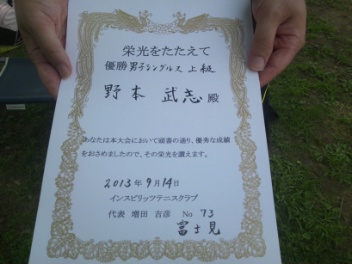 栄光をたたえて
優勝 男子シングルス 上級
野本 武志 殿
あなたは本大会において頭書の通り、優秀な成績
をおさめましたので、その栄光を讃えます。
2013年9月14日
インスピリッツテニスクラブ
代表 増田 吉彦 No 73
富士見